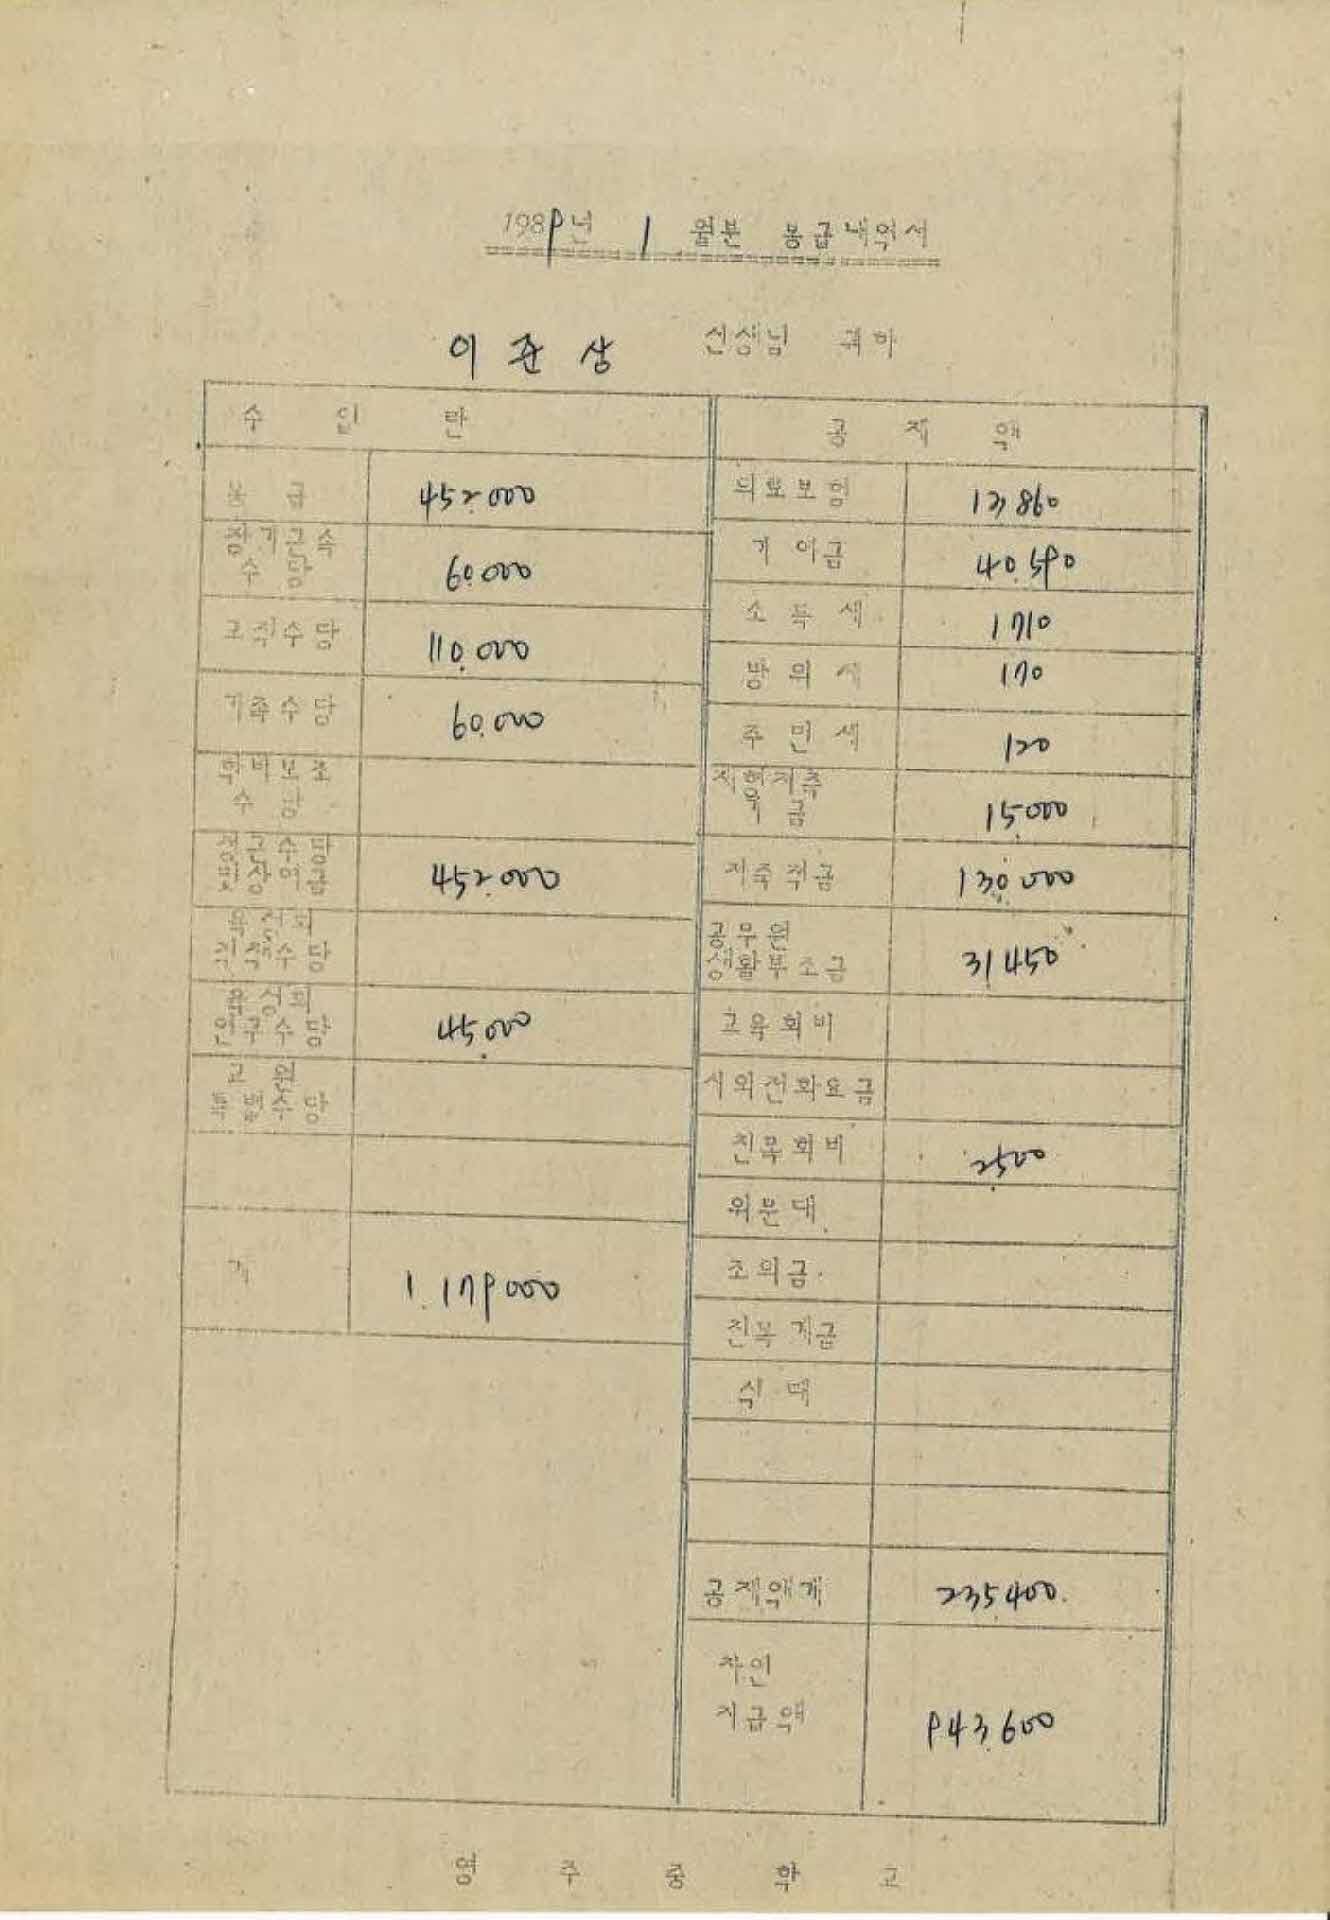 1989년 1 월분 봉급내역서
이준상 선생님 귀하
수 입 란
봉 급 452.000
장기근속
수 당 60.000
교직수당 110.000
가족수당 60.000
학비보조
수 당
정근수당
및상여금 452.000
육성회
직책수당
육성회
연구수당 45.000
교 원
특별수당
계 1.179000
공 제 액
의료보험 13860
기여금 40.590
소 득 세 1710
방 위 세 170
주 민 세 120
재형저축
금 15.000
저축적금 130.000
공무원
생활부조금 31450
교육회비
시외전화요금
친목회비 2500
위문대
조의금
친목계금
식대
공제액계 235400.
차인
지급액 943.600
영 주 중 학 교